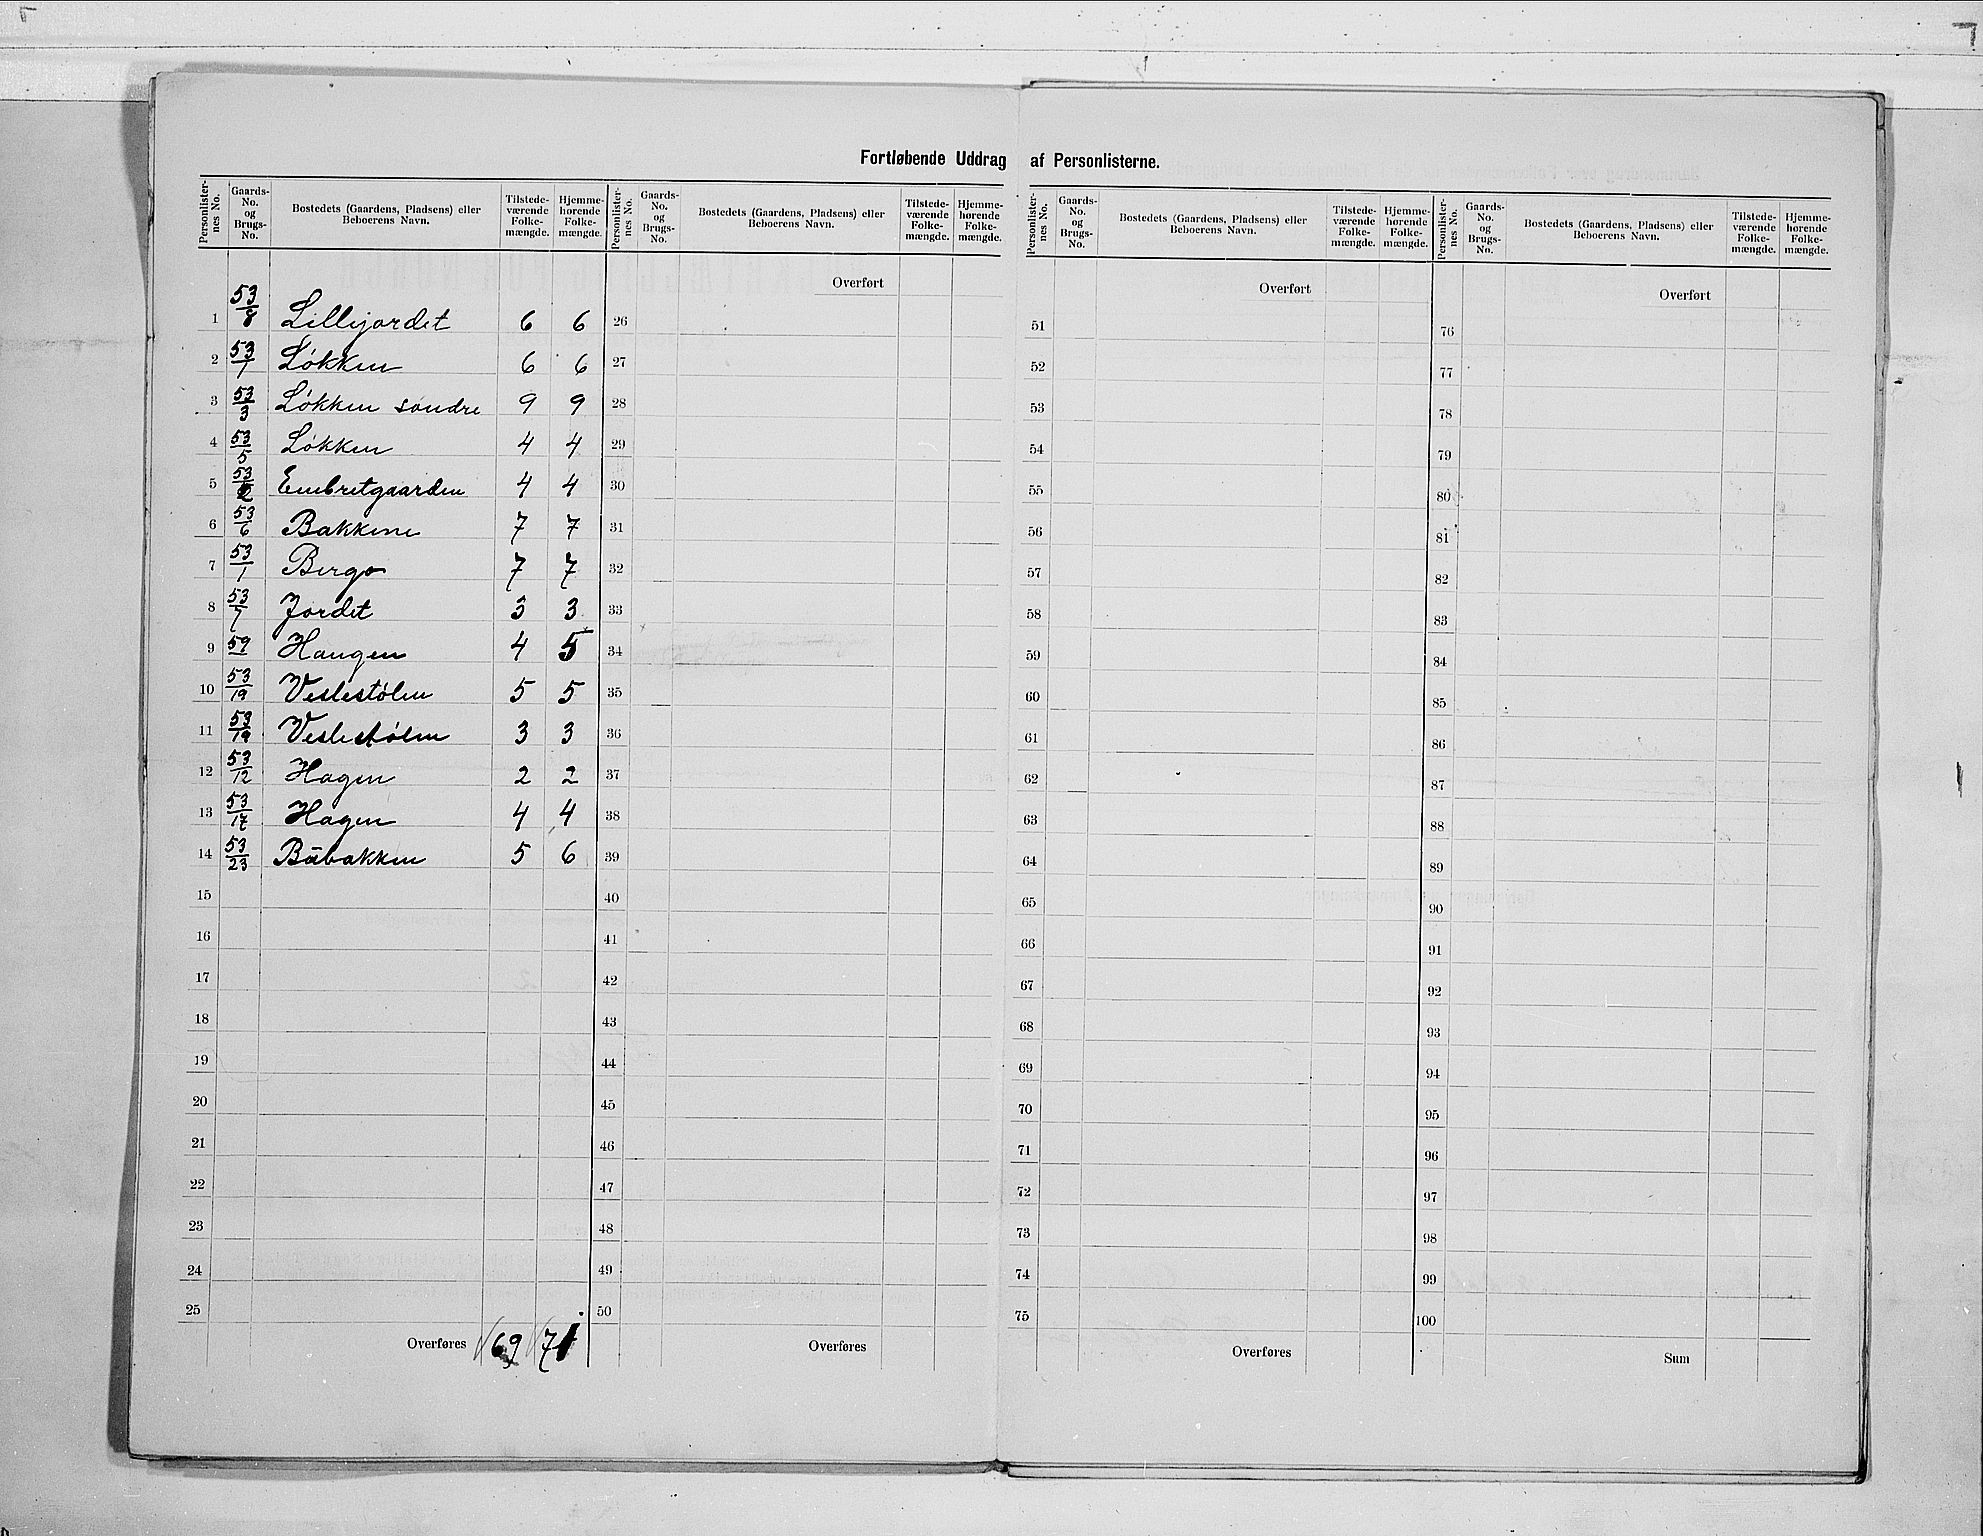 Fortløbende Uddrag af Personlisterne.
Personlister-nes No. | Gaards-No. og Brugs-No. | Bostedets (Gaardens, Pladsens) eller Beboerens Navn. | Tilstede-værende Folke-mængde. | Hjemme-hørende Folke-mængde.
1 53/8 Lillejordet 6 6
2 53/1 Løkken 6 6
3 53/3 Løkken søndre 9 9
4 53/5 Løkken 4 4
5 53/2 Embretgaarden 4 4
6 53/6 Bakkene 7 7
7 53/1 Bergo 7 7
8 53/7 Jordet 3 3
9 59 Haugen 4 5
10 53/19 Veslestølen 5 5
11 53/19 Veslestølen 3 3
12 53/12 Hagen 2 2
13 53/17 Hagen 4 4
14 53/23 Båbakken 5 6
15
16
17
18
19
20
21
22
23
24
25
Overføres 69 71
Personlister-nes No. | Gaards-No. og Brugs-No. | Bostedets (Gaardens, Pladsens) eller Beboerens Navn. | Tilstede-værende Folke-mængde. | Hjemme-hørende Folke-mængde.
Overført
26
27
28
29
30
31
32
33
34
35
36
37
38
39
40
41
42
43
44
45
46
47
48
49
50
Overføres
Personlister-nes No. | Gaards-No. og Brugs-No. | Bostedets (Gaardens, Pladsens) eller Beboerens Navn. | Tilstede-værende Folke-mængde. | Hjemme-hørende Folke-mængde.
Overført
51
52
53
54
55
56
57
58
59
60
61
62
63
64
65
66
67
68
69
70
71
72
73
74
75
Overføres
Personlister-nes No. | Gaards-No. og Brugs-No. | Bostedets (Gaardens, Pladsens) eller Beboerens Navn. | Tilstede-værende Folke-mængde. | Hjemme-hørende Folke-mængde.
Overført
76
77
78
79
80
81
82
83
84
85
86
87
88
89
90
91
92
93
94
95
96
97
98
99
100
Sum